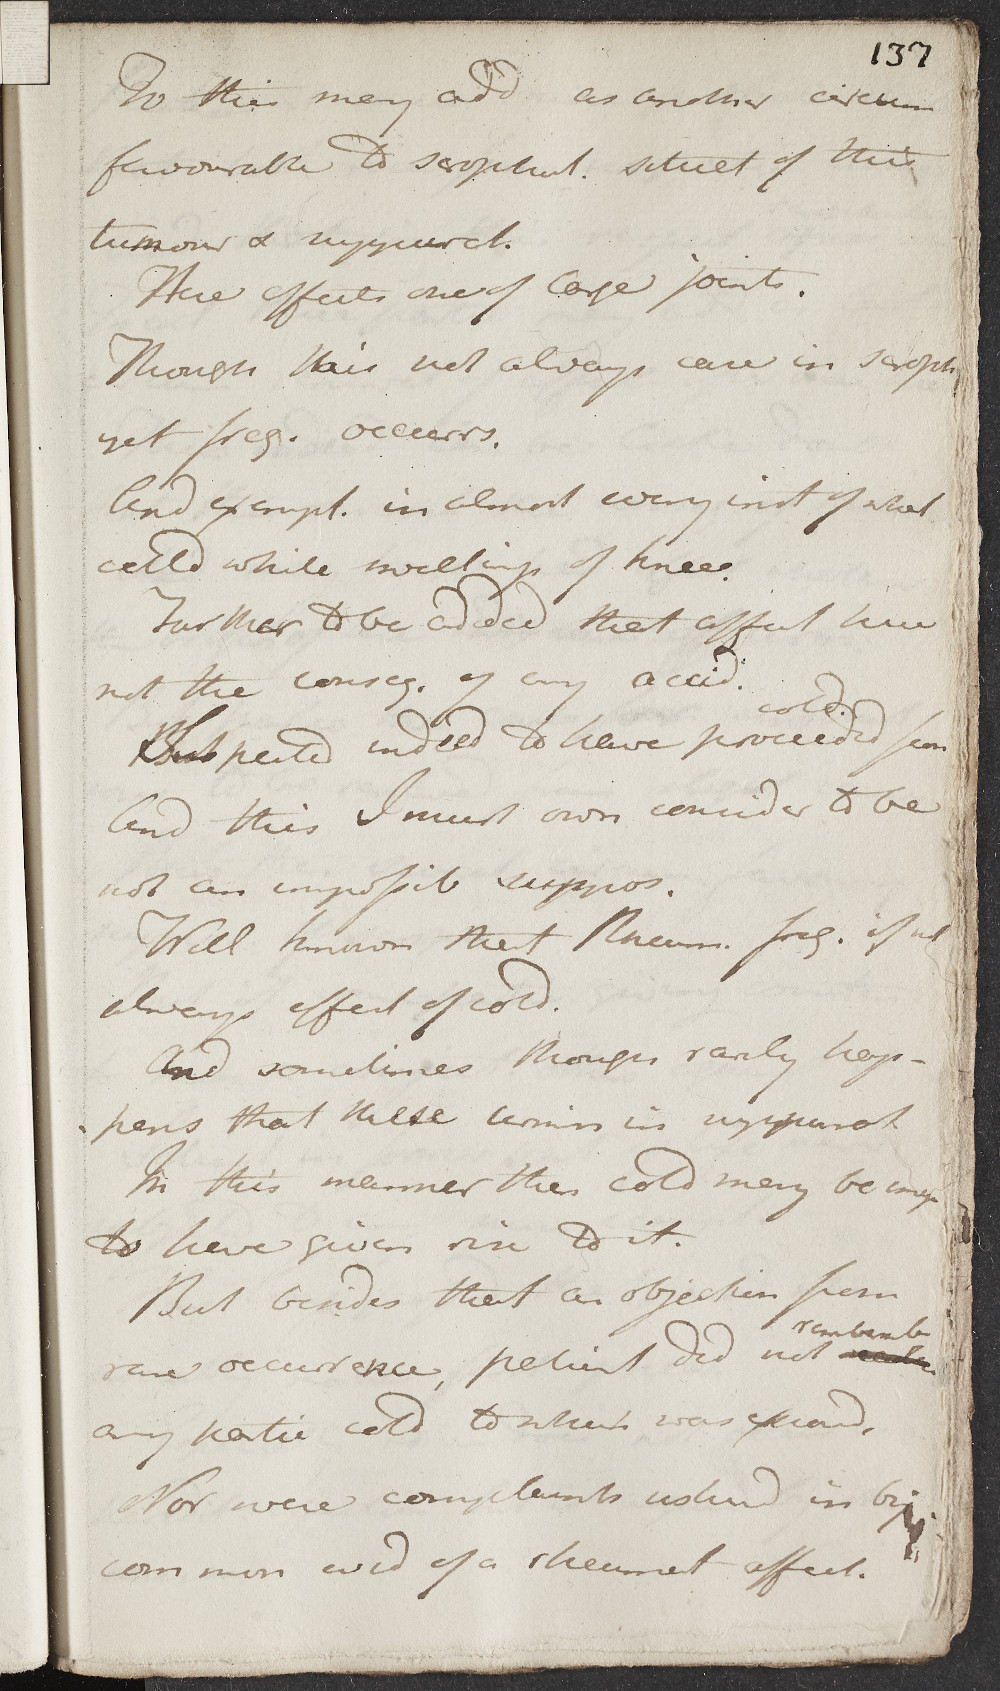 137
To this may add as another circum
favourable to scrophul. situat of this
tumour & suppurat.
Here affects one of large joints.
Though this not always case in scroph
yet freq. occurrs.
And exempl. in almost every inst of what
calld white swellings of knee.
Further to be added that affect here
not the conseq. of any accid.
cold.
Suspected indeed to have proceeded from
And this I must own consider to be
not an impossib suppos.
Well known that Rheum. freq. if not
always effect of cold.
And sometimes though rarely hap-
pens that these termin in suppurat
In this manner then cold may be imag
to have given rise to it.
But besides that an objection from
remembr
rare occurrence, patient did not
any partic cold to which was exposd.
Nor were complaints usherd in by
common evid of a rheumat affect.